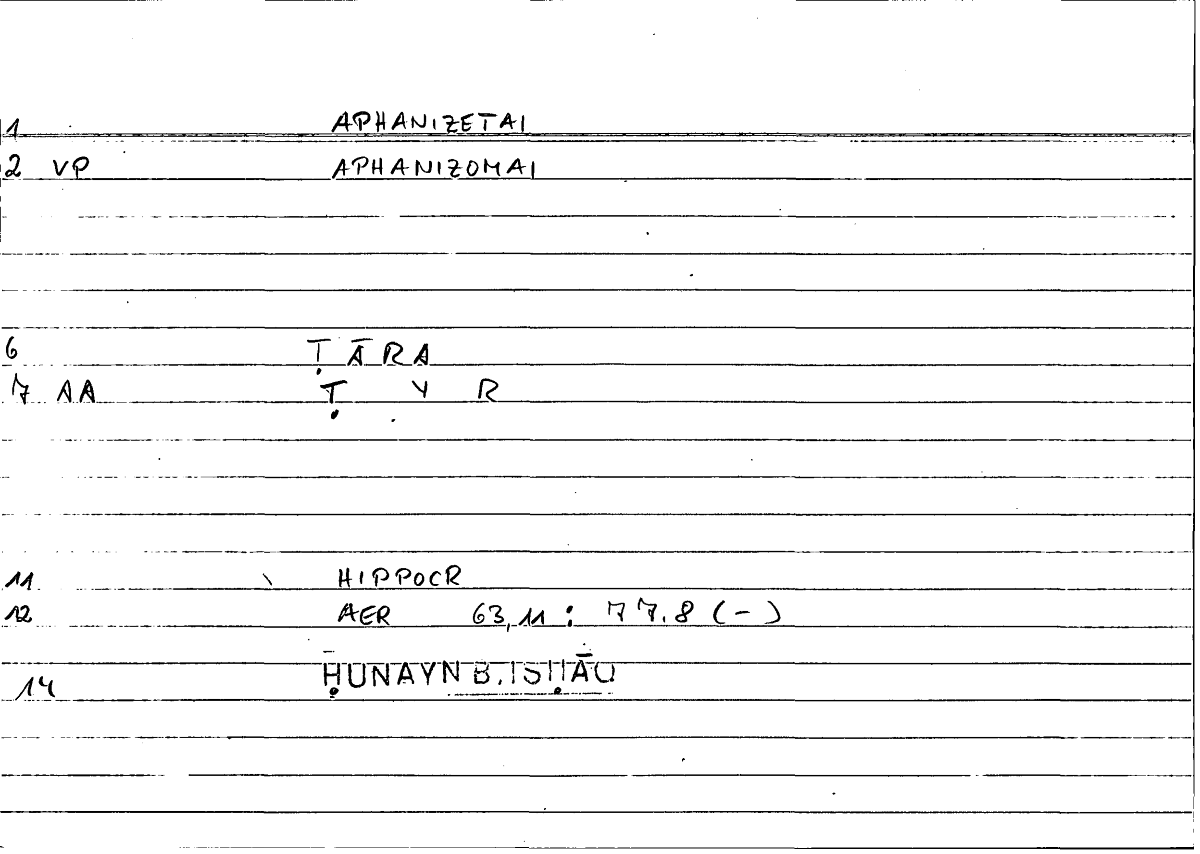 1 APHANIZETAI
2 VP APHANIZOMAI
6 ṬĀRA
7 AA Ṭ Y R
11 HIPPOCR
12 AER 63,11 : 77.8 (-)
14 ḤUNAYN B. ISḤĀQ